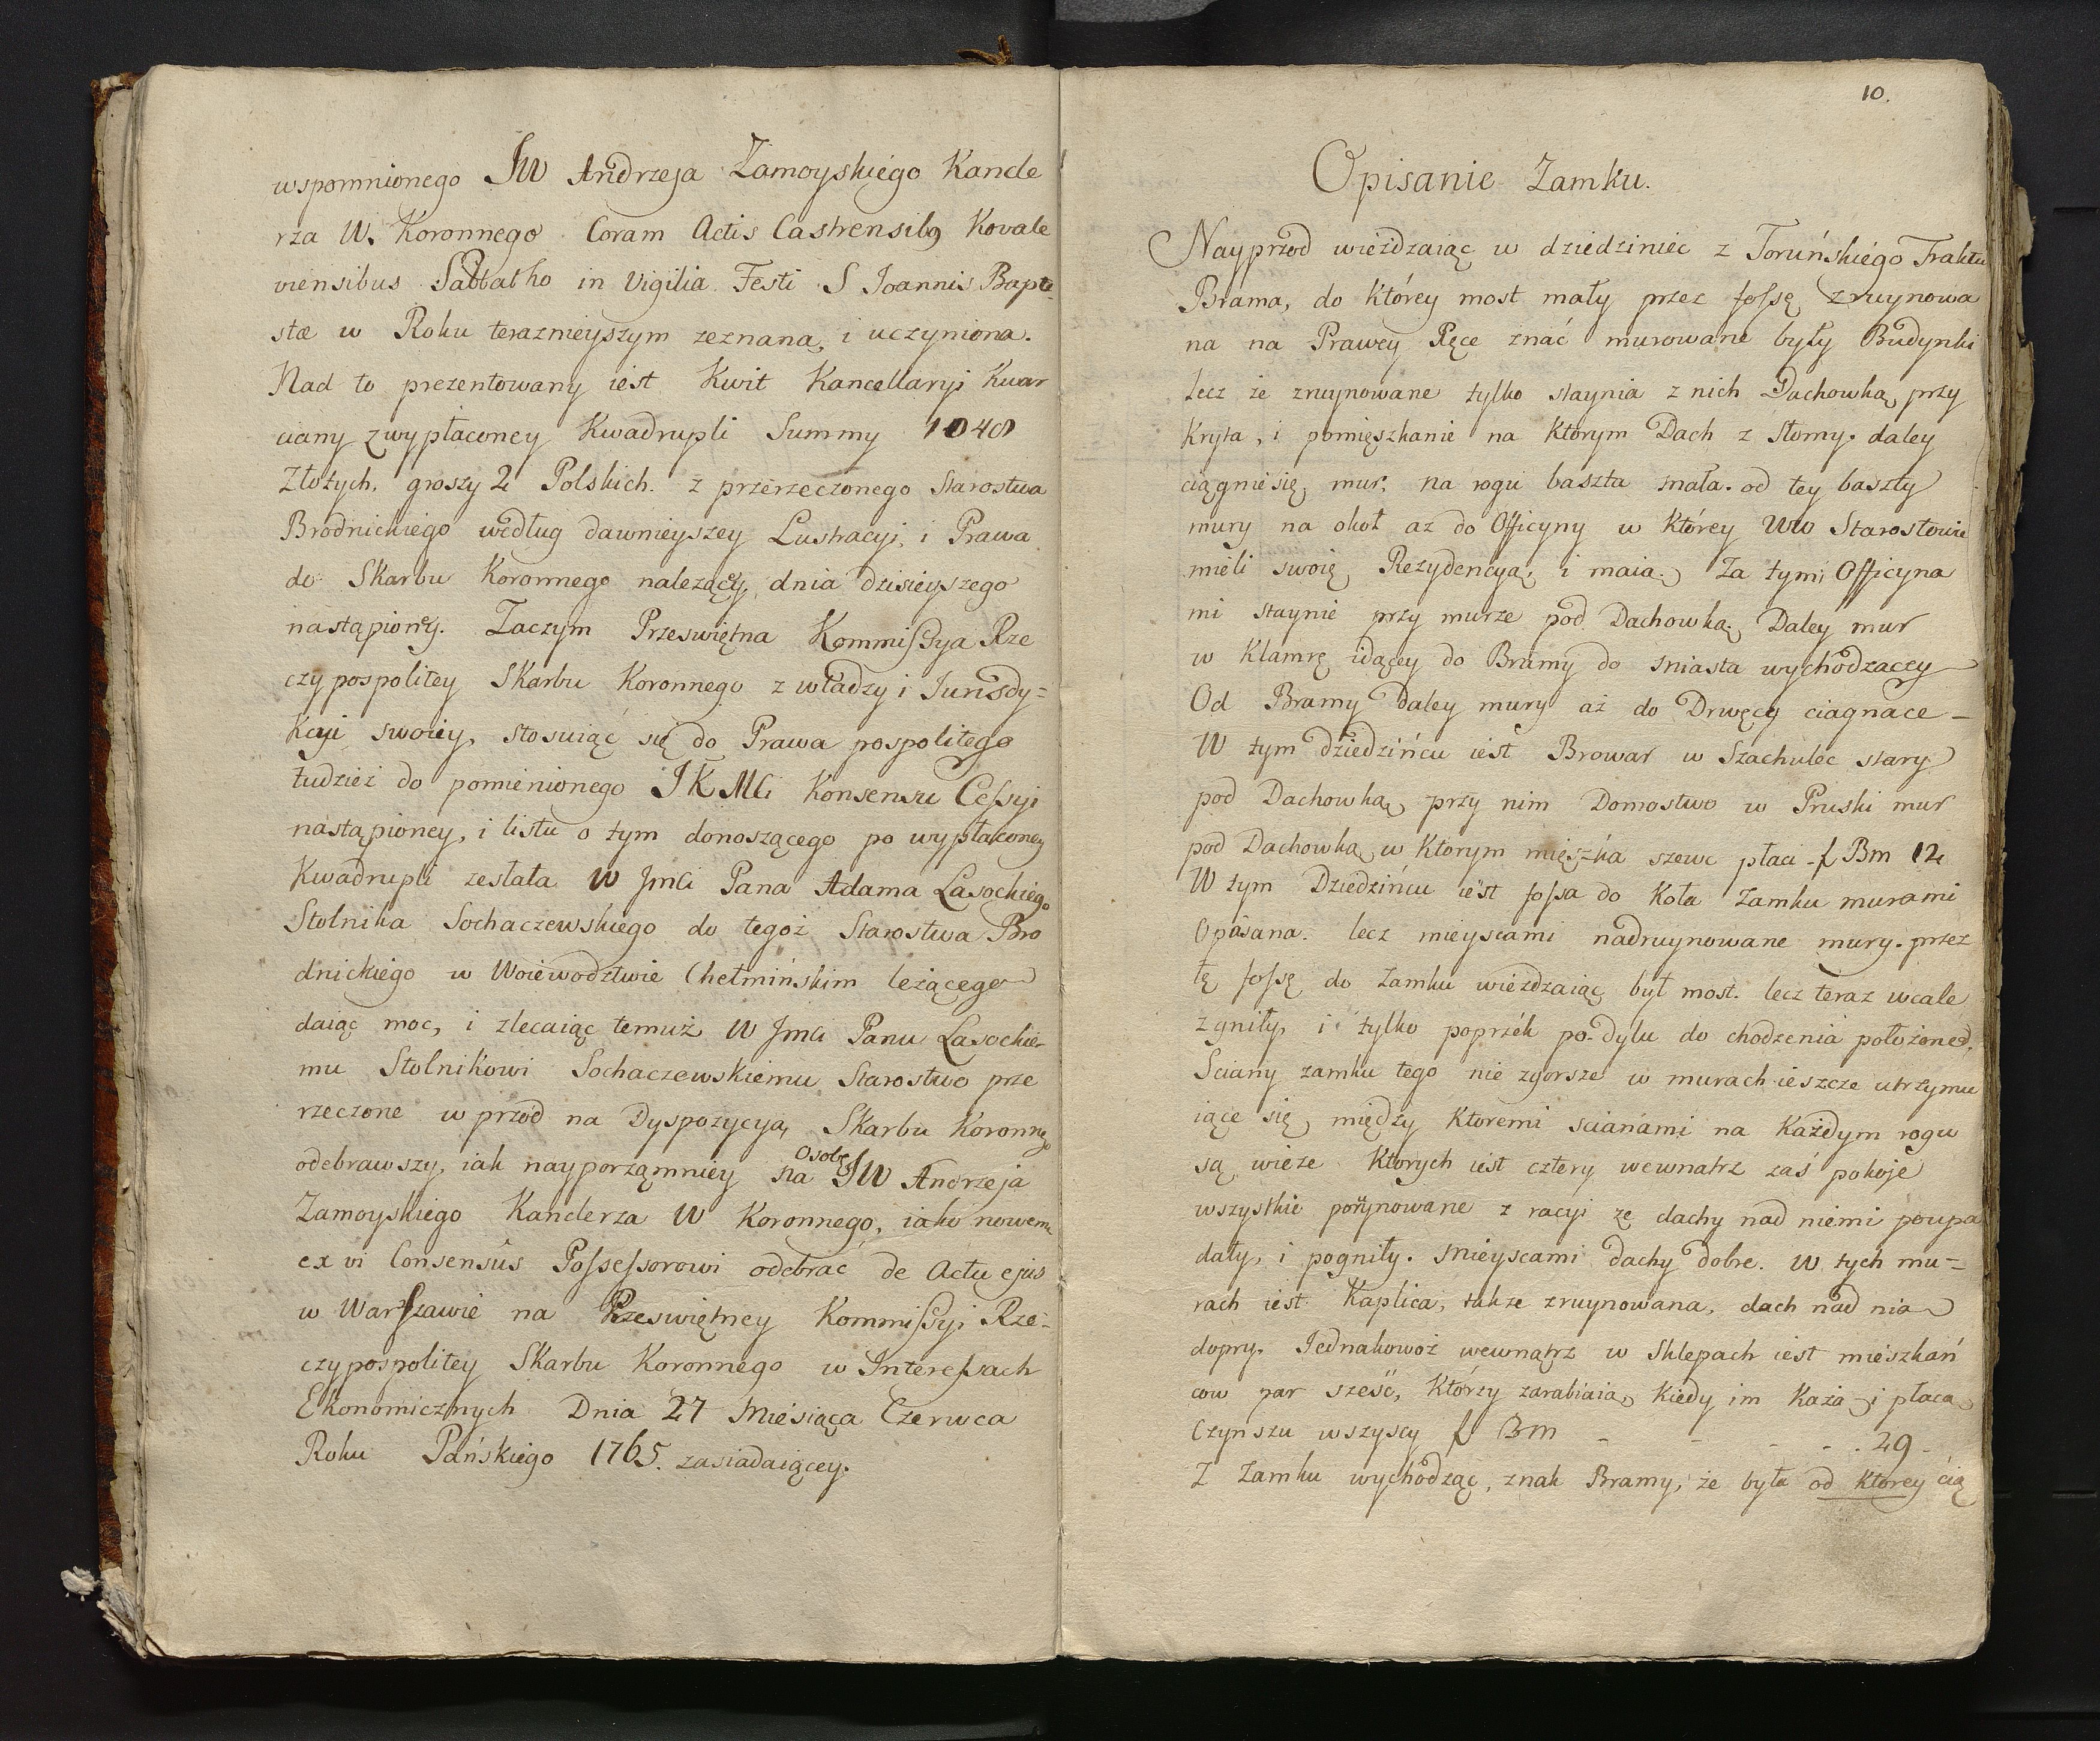 wspomnionego JW Andrzeja Zamoyskiego Kancle
rza W. Koronnego Coram Actis Castrensibg Kovale
viensibus Sabbatho in Vigilia Festi S Joannis Bapti
stæ w Roku teraznieyszym zeznaną, i uczyniona.
Nad to prezentowany iest Kwit Kancellaryi Kwar
ciany z wypłaconey Kwadrupli Summy 1040
Złotych, groszy 2 Polskich. z przerzeczonego Starostwa
Brodnickiego według dawnieyszey Lustracyi, i Prawa
do Skarbu Koronnego należącey, dnia dzisieyszego
nastąpioney. Zaczym Przeświętna Kommissya Rze
czypospolitey Skarbu Koronnego z władzy i Jurisdy=
kcyi swoiey, stosuiąć się do Prawa pospolitego
tudzież do pomienionego JKMCi Konsensu Cessyi
nastąpioney, i listu o tym donoszącego po wypłaconey
Kwadrupli zesłała W JmCi Pana Adama Lasockiego
Stolnika Sochaczewskiego do tegoż Starostwa Bro
dnickiego w Woiewodztwie Chełmińskim leżącego
daiąc moc, i zlecaiąc temuż W JmCi Panu Lasockie-
mu Stolnikowi Sochaczewskiemu Starostwo prze
rzeczone w przod na Dyspozycyą Skarbu Koronnego
odebrawszy, iak nayporządniey na Osobę JW Andrzeja
Zamoyskiego Kanclerza W Koronnego, iako nowemu
ex vi Consensûs Possessorowi odebrać de Actu ejus
w Warszawie na Przeświętney Kommissyi Rze-
czypospolitey Skarbu Koronnego w Interessach
Ekonomicznych Dnia 27 Miesiąca Czerwca
Roku Pańskiego 1765. zasiadaiącey.
10.
Opisanie Zamku.
Nayprzod wieżdzaiąc w dziedziniec z Toruńskiego Traktu
Brama, do którey most mały przez fossę zruynowa
na na Prawey Ręce znać murowane były Budynki
lecz że zruynowane tylko staynia z nich Dachowką przy
kryta, i pomięszkanie na ktorym Dach z Słomy. daley
ciągnie się mur. na rogu baszta mała. od tey baszty
mury na okoł aż do Officyny w którey WW Starostowie
mieli swoię Rezydencyą, i maią. Za tymi Officyna
mi staynie przy murze pod Dachowką, Daley mur
w Klamrę idącey do Bramy do miasta wychodzacey
Od Bramy Daley mury aż do Drwęcy ciagnace -
W tym dziedzińcu iest Browar w Szachulec stary
pod Dachowką, przy nim Domostwo w Pruski mur
pod Dachowką w ktorym mięszka szewc płaci - f Bm 12
W tym Dziedzińcu iest fossa do koła Zamku murami
Opasana. lecz mieyscami nadruynowane mury. przez
tę fossę do Zamku wieżdzaiąc był most. lecz teraz wcale
zgniły, i tylko poprzék po dylu do chodzenia położone.
Sciany zamku tego nie zgorsze w murach ieszcze utrzymu
iące się, między ktoremi scianami na każdym rogu
są wieże ktorych iest cztery wewnatrz zaś pokoje
wszystkie porynowane z racyi że dachy nad niemi poupa
dały, i pogniły. mieyscami dachy dobre. W tych mu=
rach iest Kaplica, także zruynowana, dach nad nią
dopry. Jednakowoż wewnątrz w Sklepach iest mieszkań
cow par sześć, którzy zarabiaią, kiedy im każą i płacą
Czynszu wszyscy f Bm - - - - . 29 -
Z Zamku wychodząc, znak Bramy, że była od ktorey cią